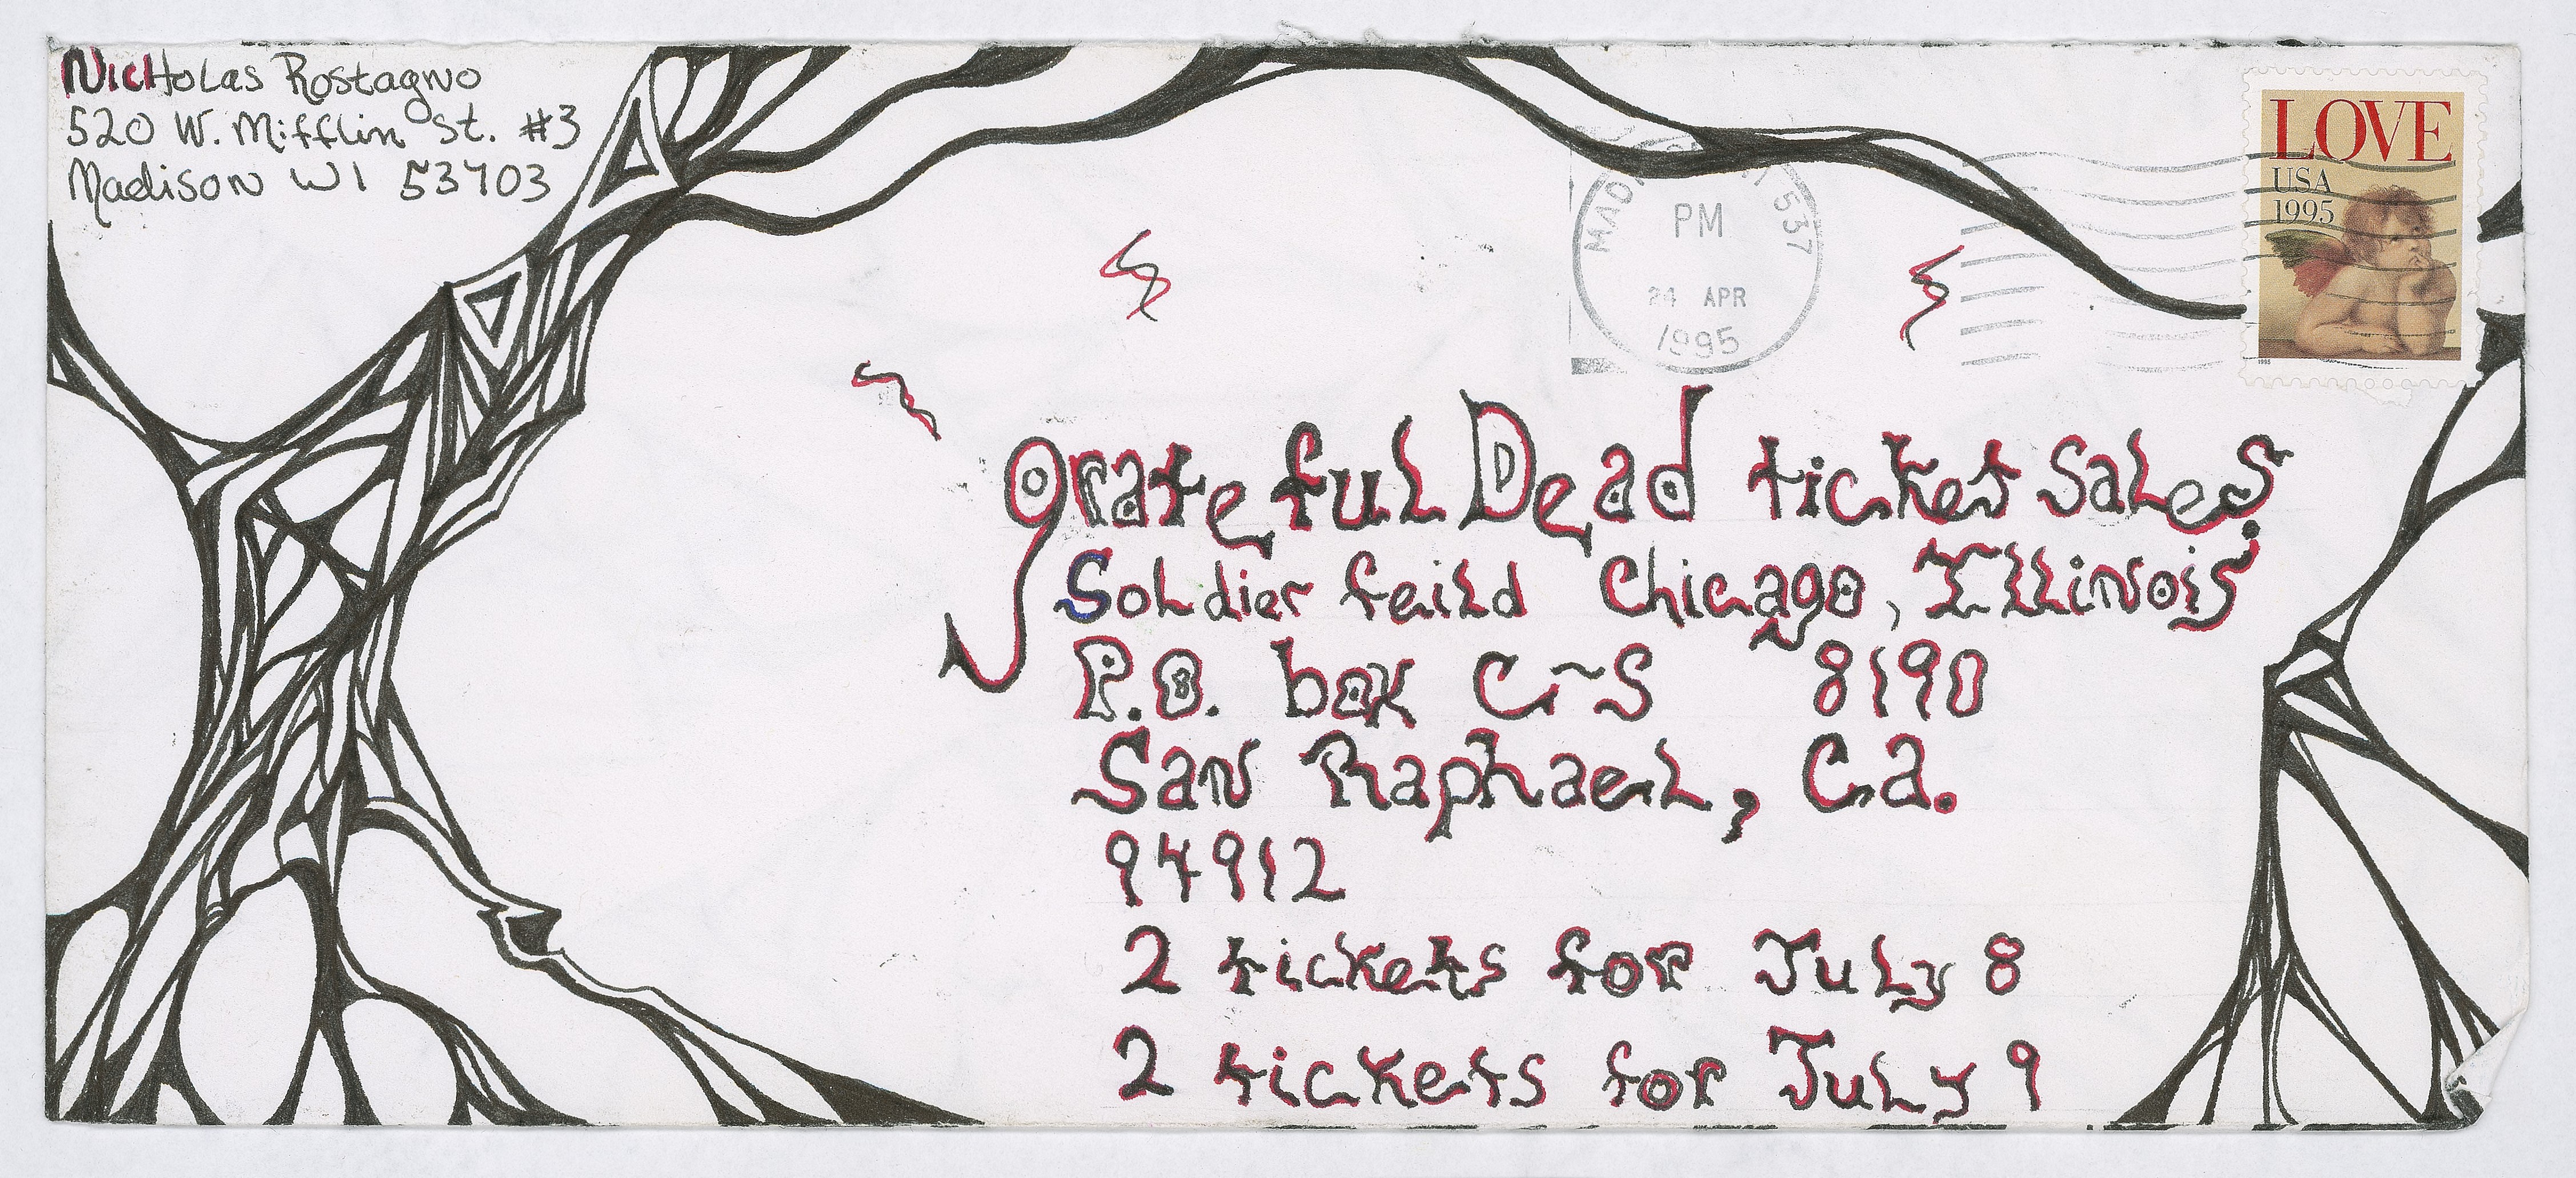 Nicholas Rostagno
520 W. Mifflin St. #3
Madison WI 53703
LOVE
USA
1995
PM
24 APR
1995
537
1995
grateful Dead ticket Sales
Soldier feild Chicago, Illinois
P.O. box C~S 8190
San Raphael, Ca.
94912
2 tickets for July 8
2 tickets for July 9